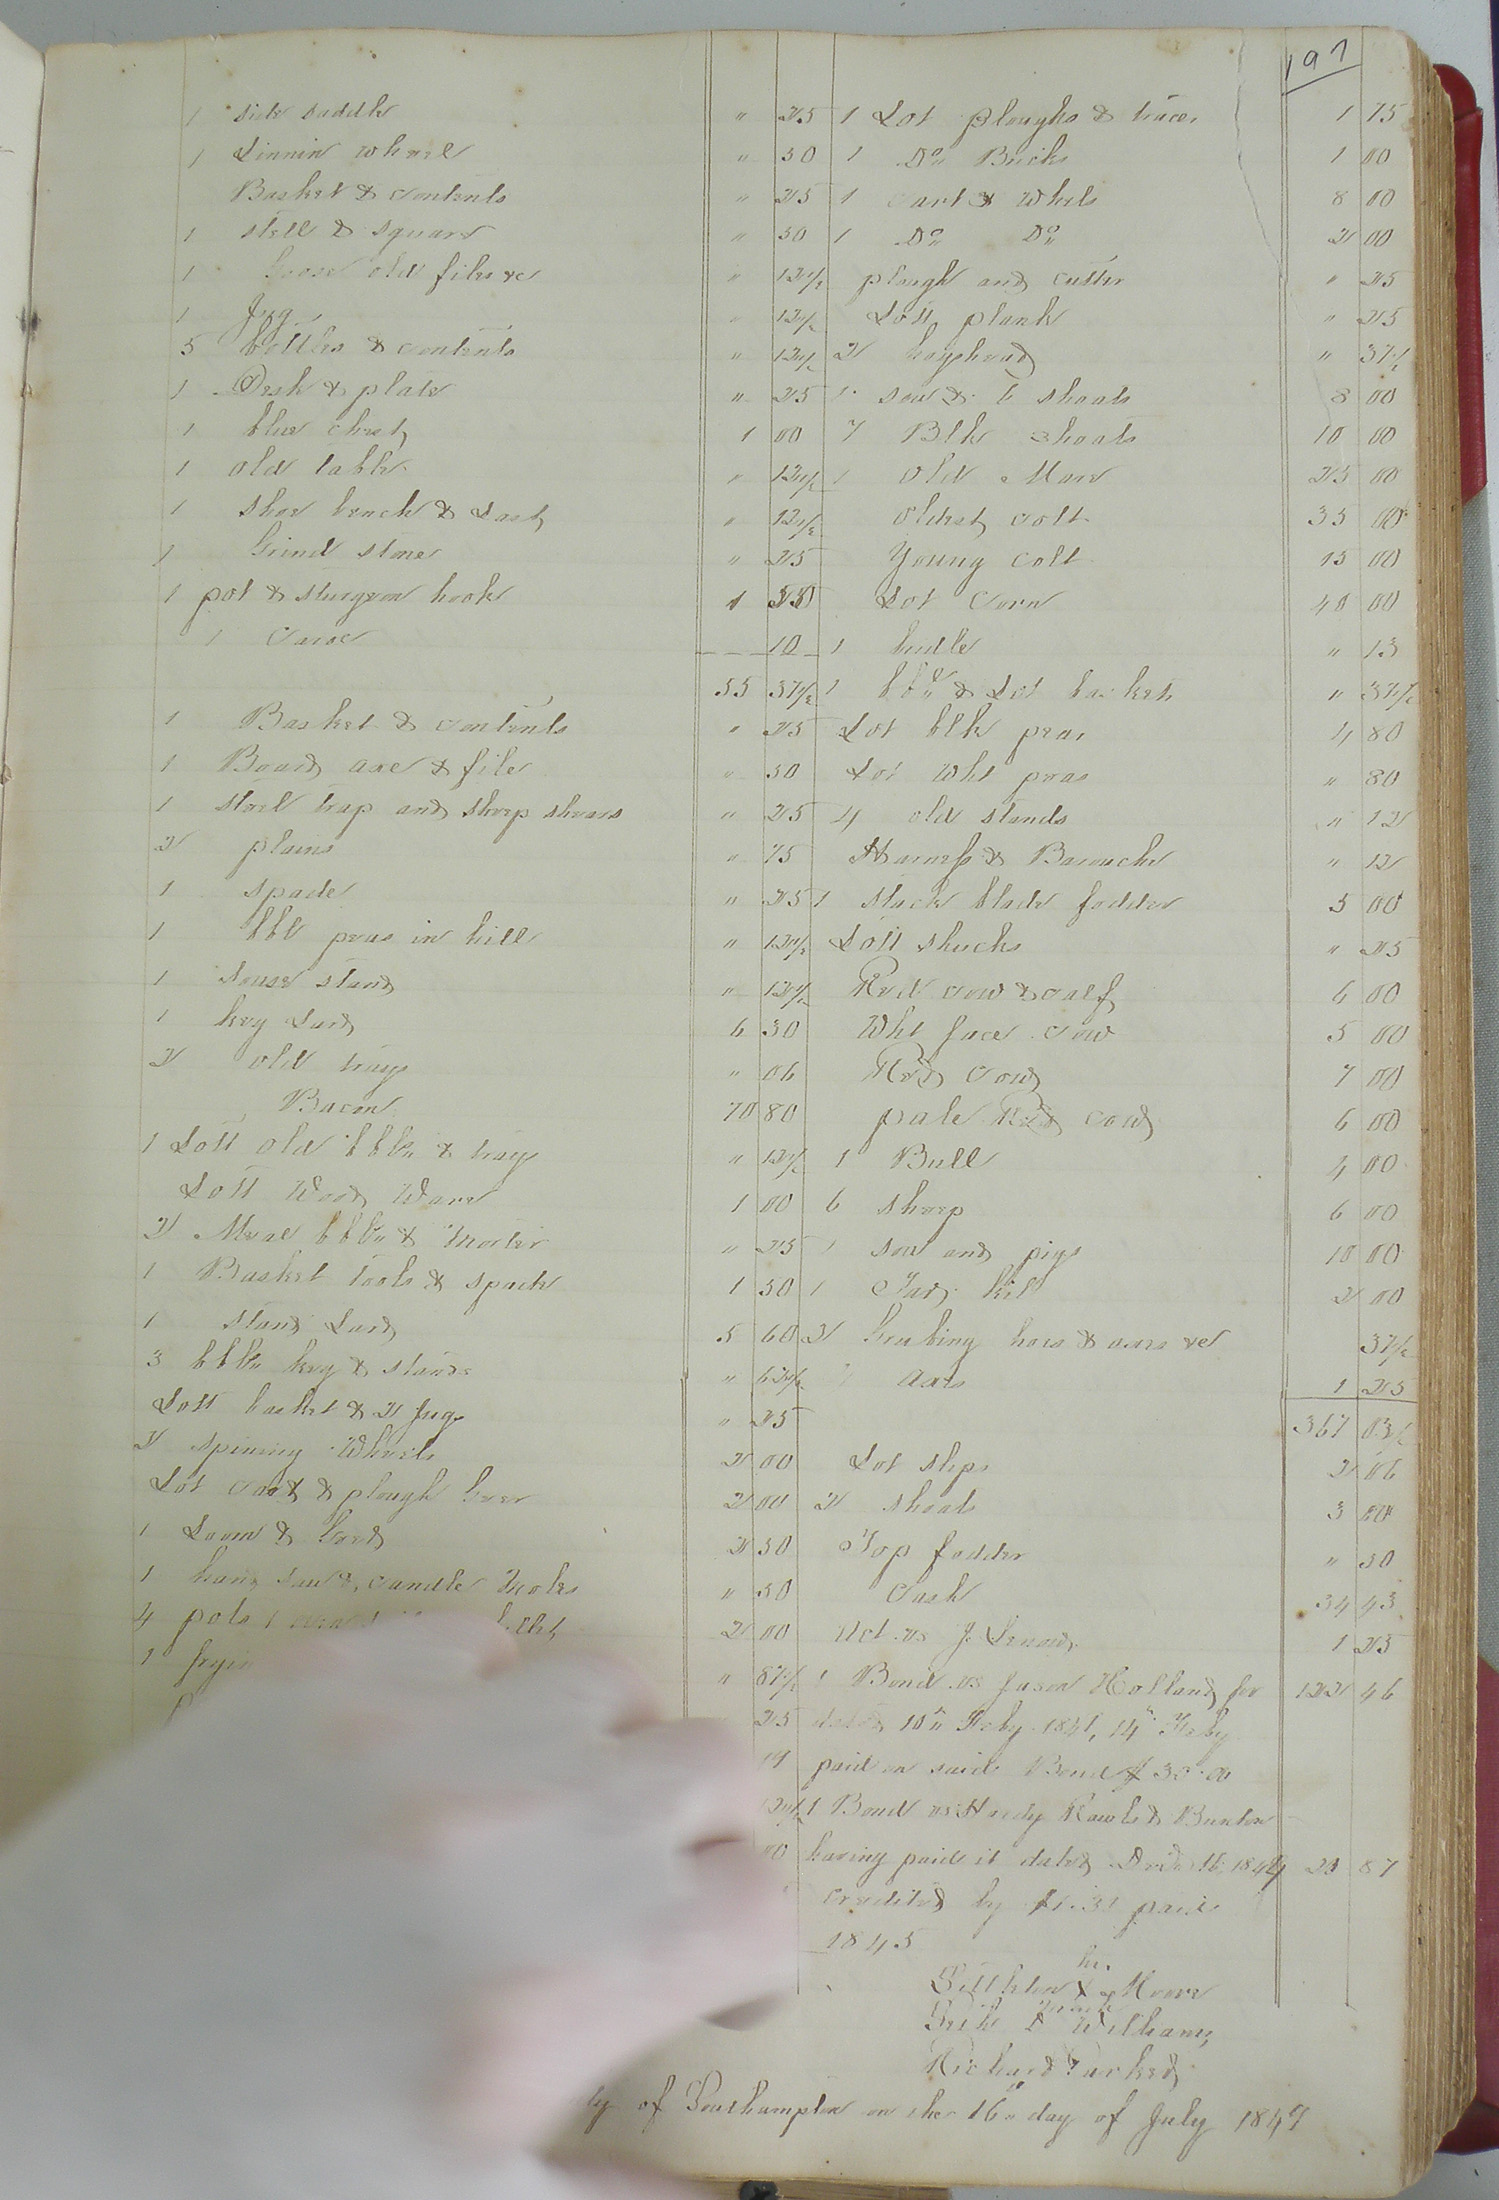 197
1 side saddle " 25
1 Linnin wheel " 50
Basket & contents " 25
1 stell & square " 50
1 loose old files &c " 12 1/2
1 Jug " 12 1/2
5 bottles & contents " 12 1/2
1 Desk & plate " 25
1 blue chest 1 00
1 old table " 12 1/2
1 Shoe bench & Last " 12 1/2
1 Grind stone " 25
1 pot & sturgeon hook 1
1 Canoe 10
55 37 1/2
1 Basket & contents " 25
1 Board axe & file " 50
1 steel trap and sheep shears " 25
2 plains " 75
1 spade " 25
1 bbl peas in hill " 12 1/2
1 Souse stand " 12 1/2
1 keg Lard 6 50
2 old trays " 06
Bacon 70 80
1 Lott old bbls & trays " 12 1/2
Lott Wood Ware 1 00
2 Meal bbls & Morter " 25
1 Basket Tools & spade 1 50
1 stand Lard 5 60
3 bbls keg & stands " 62 1/2
Lott basket & 2 Jugs " 25
2 spinning Wheels 2 00
Lot cart & plough Gear 2 00
1 Loom & Gord 2 50
1 hand saw & candle Moles " 50
4 pots 2 00
1 " 87 1/2
25
1 Lot ploughs & traces 1 75
1 Do Bricks 1 00
1 cart & Whels 8 00
1 Do Do 2 00
plough and custer " 25
Lott plank " 25
2 hogshead " 37 1/2
1 sow & 6 shoats 8 00
7 Blk shoats 10 00
1 old Mare 25 00
oldest colt 35 00
Young colt 15 00
Lot Corn 40 00
1 kittle " 13
1 bbl & Lot baskets " 37 1/2
Lot blk peas 4 80
Lot Wht peas " 80
4 old stands " 12
Harness & Barouche " 12
1 stack blade fodder 5 00
Lott shucks " 25
Red cow & calf 6 00
Wht face cow 5 00
Red Cow 7 00
pale Red cow 6 00
1 Bull 4 00
6 sheep 6 00
1 sow and pigs 10 00
1 Tar kil 2 00
2 Grubing hoes & axes &c 37 1/2
axes 1 25
367 03 1/2
Lot slips 2 06
2 shoats 3 00
Top fodder " 50
Cash 34 43
Act vs J. 1 25
1 Bond vs Jason Holland for 122 46
dated 10" Feby 1841, 14" Feby
paid on said Bond $30.00
1 Bond vs Hardy Rawls & Buxton
having paid it dated Decr 16 1844 20 87
credited by paid
1845
his
Moore
mark
Williams
Richard Parker
of Southampton on the 16" day of July 1847